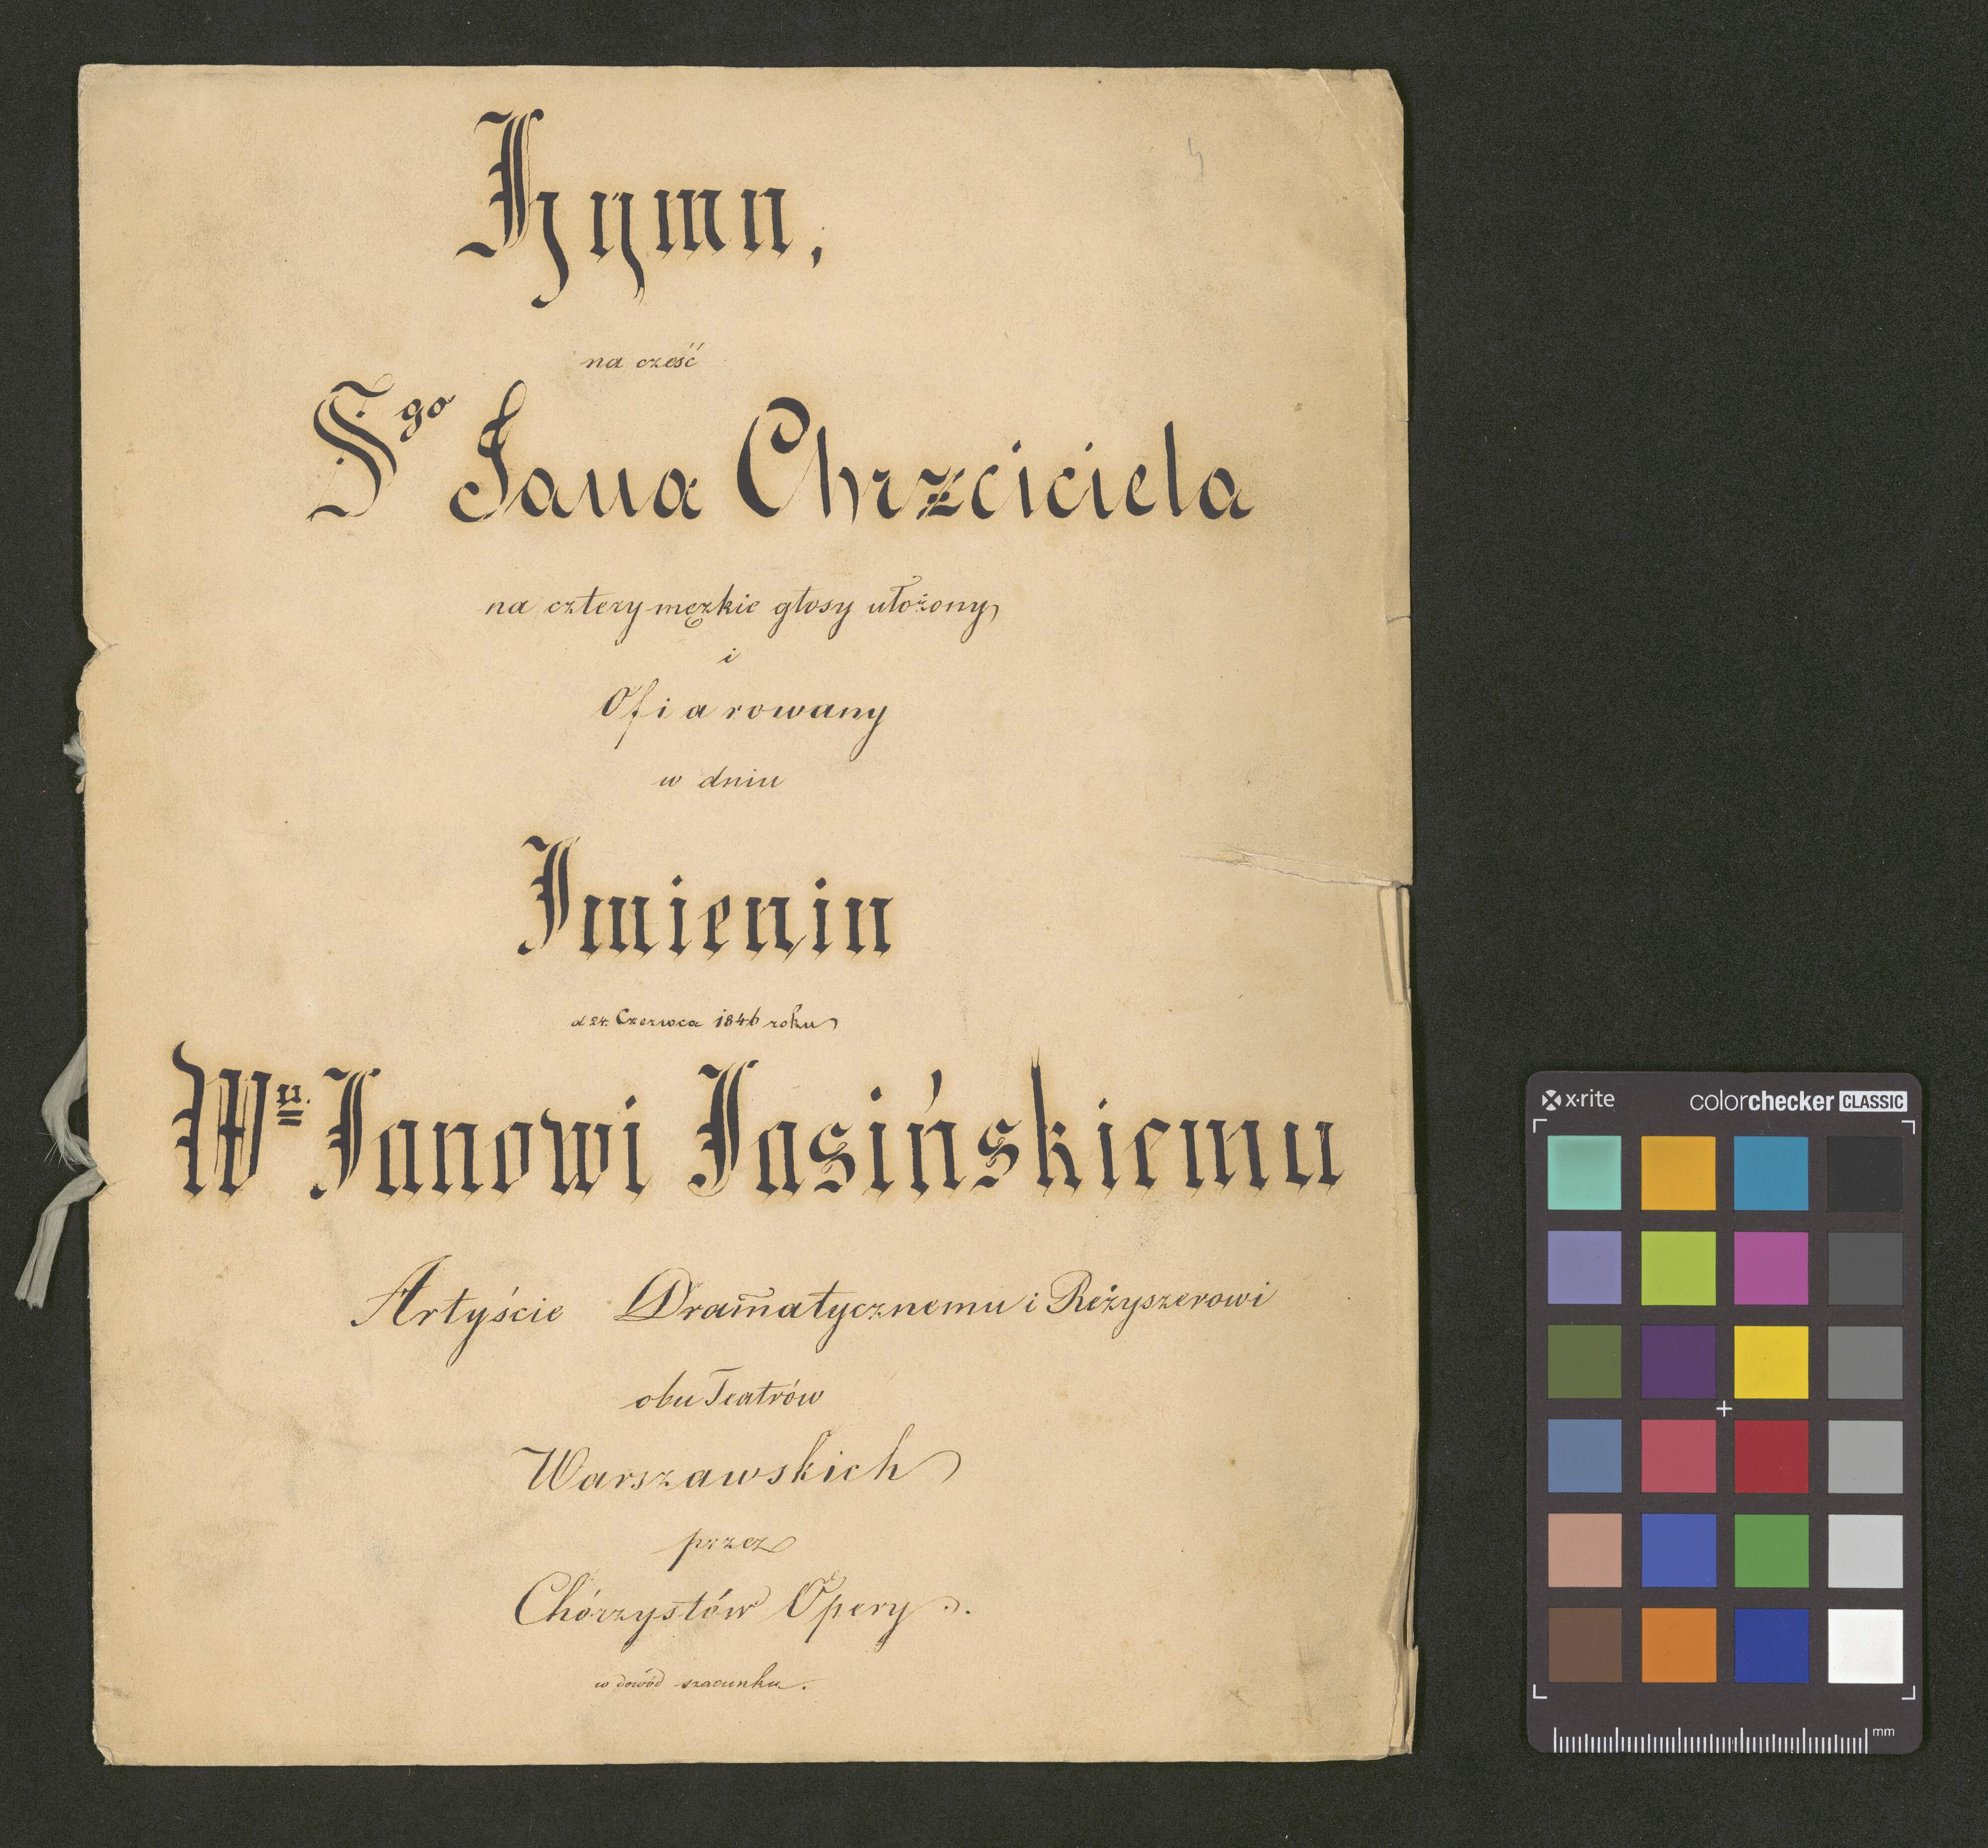 Hymn,
na cześć
Sgo Jana Chrzciciela
na cztery męzkie głosy ułożony
i
Ofiarowany
w dniu
Imienin
d 24. Czerwca 1846 roku
Wu. Janowi Jasińskiemu
Artyście Dramatycznemu i Reżyszerowi
obu Teatrów
Warszawskich
przez
Chórzystów Opery
w dowód szacunku.
x·rite colorchecker CLASSIC
mm